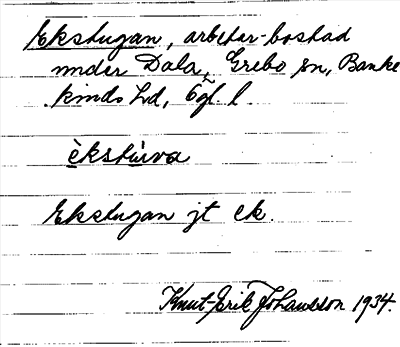 Ekstugan, arbetar-bostad
under Dala, Grebo sn, Banke
kinds hd, Ögl. l
èkstùva
Ekstugan jt ek.
Knut-Erik Johansson 1934.